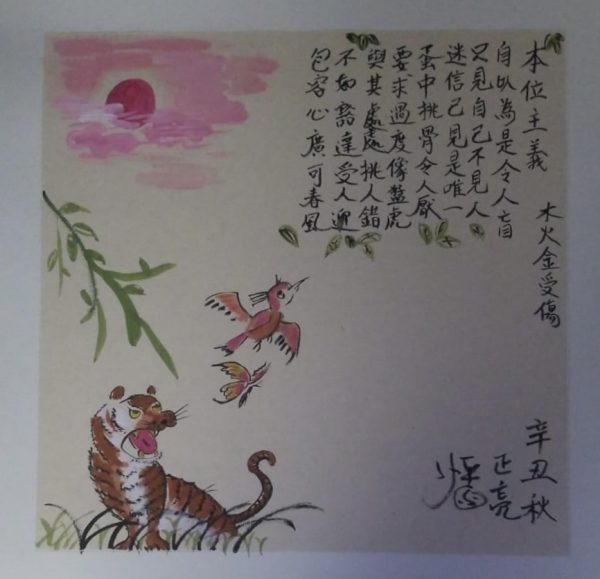 本位主義
木火金受傷
自以為是令人盲
只見自己不見人
迷信己見是唯一
蛋中挑骨令人厭
要求過度像盤虎
與其處處挑人錯
不如豁達受人迎
包容心廣可春風
辛丑秋
正亮